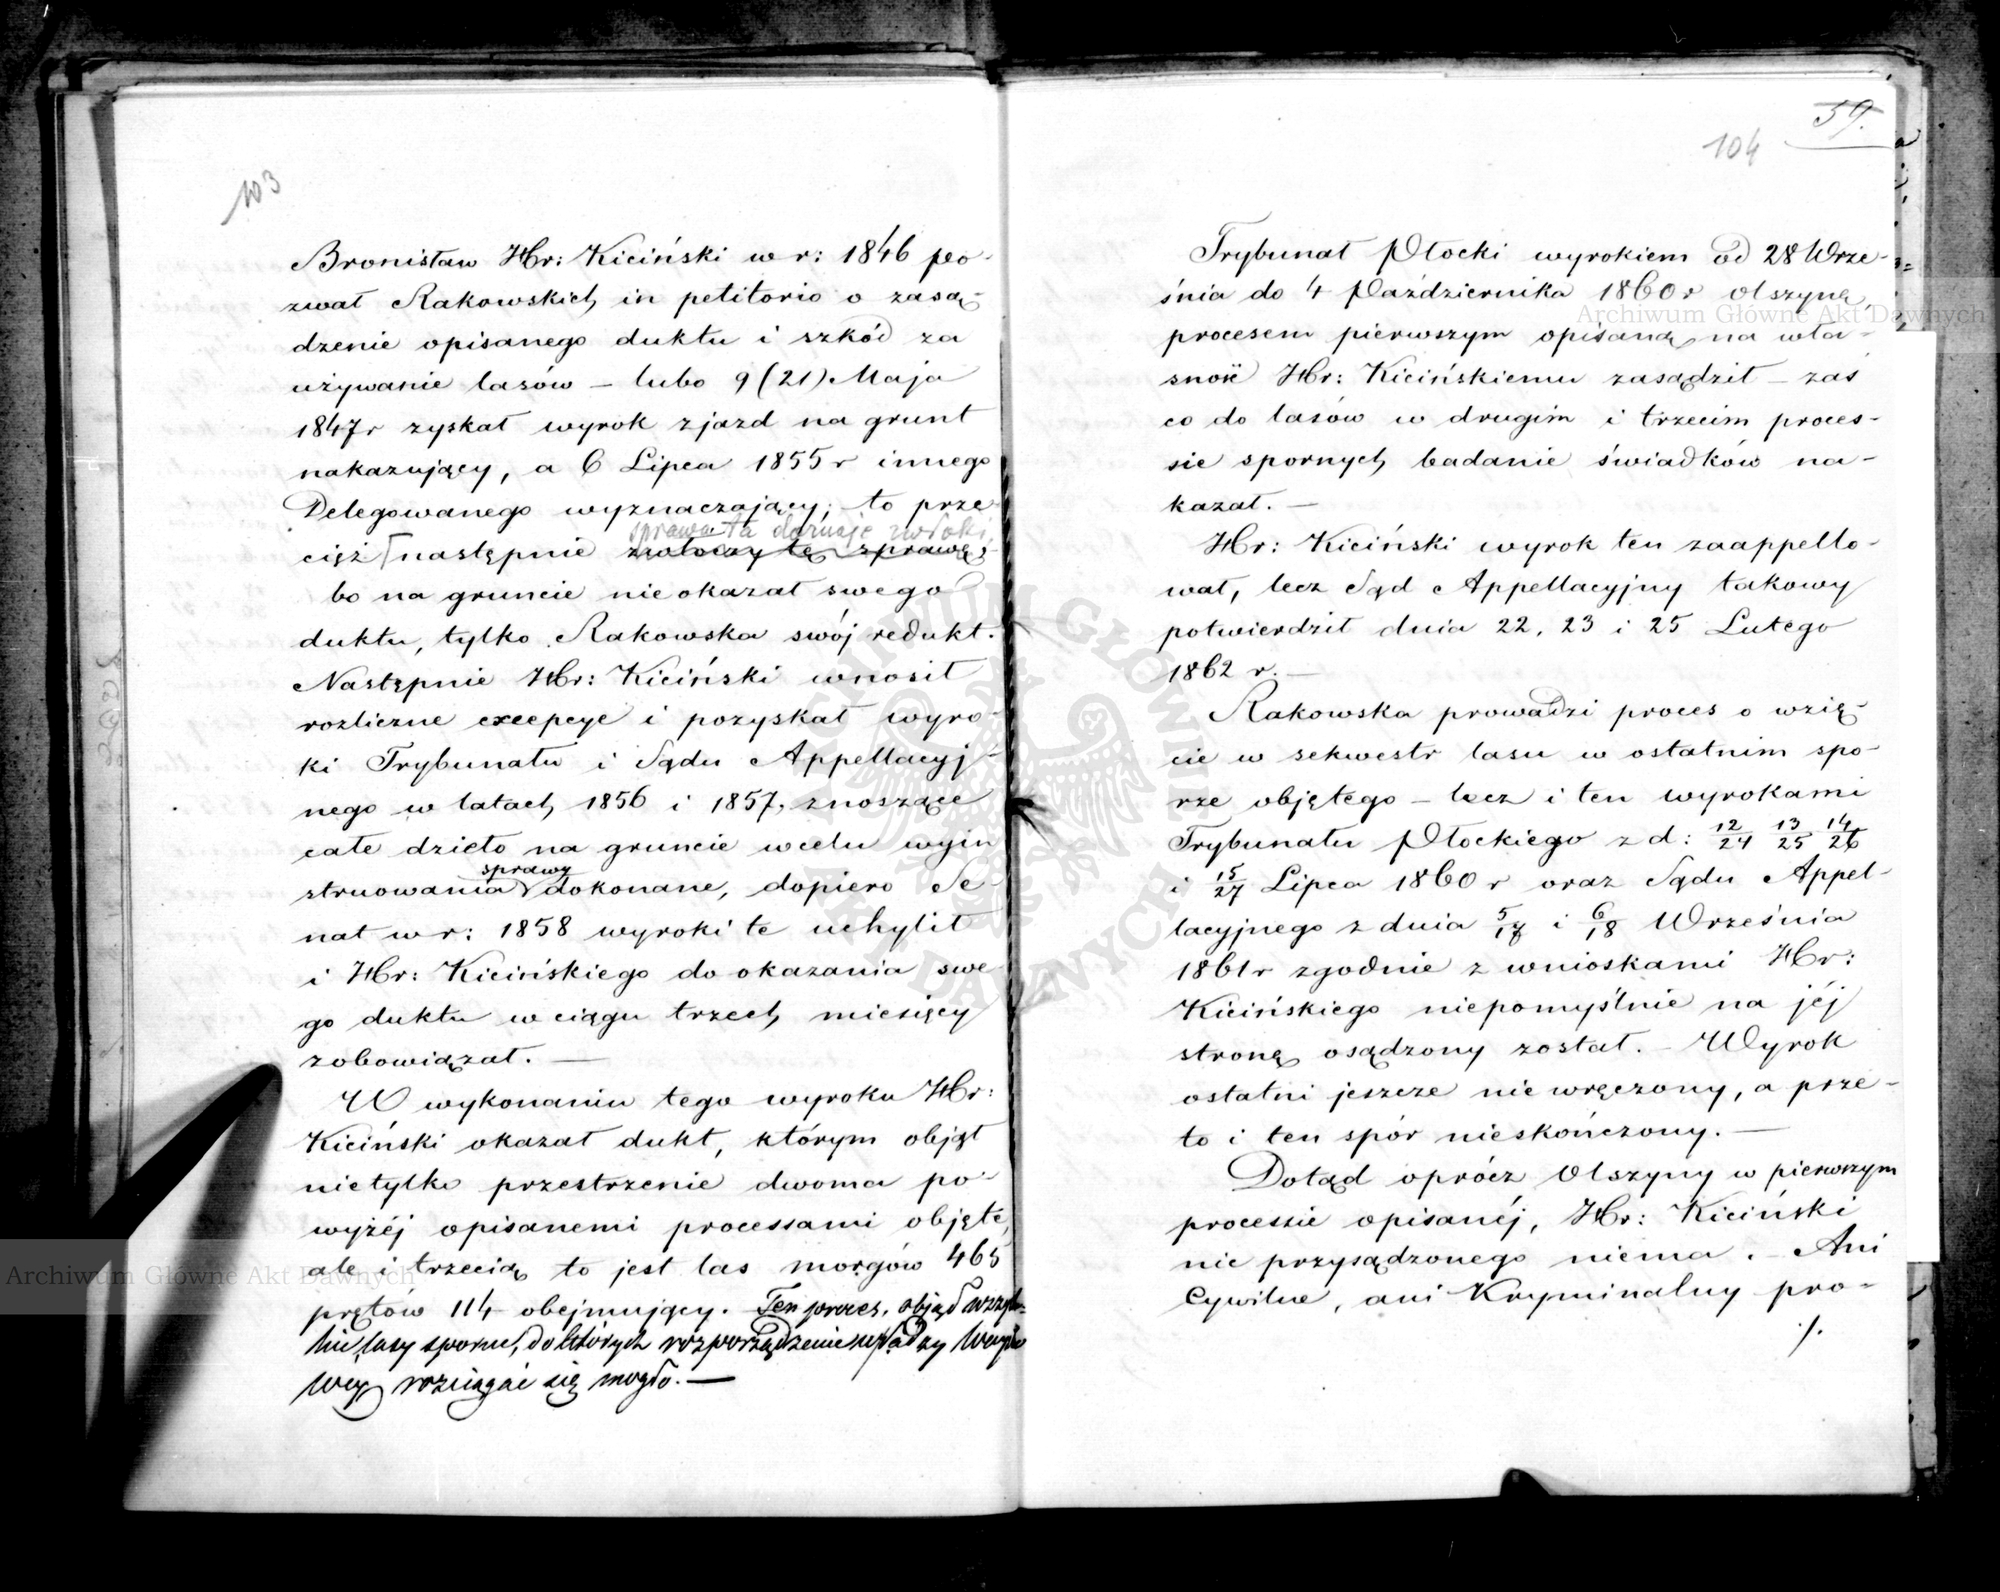 103
Bronisław Hr: Kiciński w r: 1846 po-
zwał Rakowskich in petitorio o zasą-
dzenie opisanego duktu i szkód za
używanie lasów – lubo 9 (21) Maja
1847 r zyskał wyrok zjazd na grunt
nakazujący, a 6 Lipca 1855 r innego
Delegowanego wyznaczający; to prze
sprawa ta doznaje zwłoki,
cięż następnie zwłoczy tę sprawę;
bo na gruncie nie okazał swego
duktu, tylko Rakowska swój redukt.
Następnie Hr: Kiciński wnosił
rozliczne excepcye i pozyskał wyro-
ki Trybunału i Sądu Appellacyj-
nego w latach 1856 i 1857, znoszące
całe dzieło na gruncie w celu wyin
sprawy
struowania dokonane, dopiero Se-
nat w r: 1858 wyroki te uchylił
i Hr: Kicińskiego do okazania swe
go duktu w ciągu trzech miesięcy
zobowiązał. —
W wykonaniu tego wyroku Hr:
Kiciński okazał dukt, którym objął
nietylko przestrzenie dwoma po-
wyżéj opisanemi processami objęte,
ale i trzecią to jest las morgów 465
prętów 114 obejmujący. – Ten proces, objął wszyst=
kie lasy sporne, do których rozporządzenie
rozciągać się mogło. —
59.
104
Trybunał Płocki wyrokiem od 28 Wrze-
śnia do 4 Października 1860 r Olszynę
procesem pierwszym opisaną na wła-
sność Hr: Kicińskiemu zasądził – zaś
co do lasów w drugim i trzecim proces-
sie spornych badanie świadków na-
kazał. —
Hr: Kiciński wyrok ten zaappello-
wał, lecz Sąd Appellacyjny takowy
potwierdził dnia 22, 23 i 25 Lutego
1862 r. —
Rakowska prowadzi proces o wzię-
cie w sekwestr lasu w ostatnim spo-
rze objętego – lecz i ten wyrokami
Trybunału Płockiego z d: 12/24 13/25 14/26
i 15/27 Lipca 1860 r oraz Sądu Appel-
lacyjnego z dnia 5/17 i 6/18 Września
1861 r zgodnie z wnioskami Hr:
Kicińskiego niepomyślnie na jéj
stronę osądzony został. – Wyrok
ostatni jeszcze nie wręczony, a prze-
to i ten spór nieskończony. —
Dotąd oprócz Olszyny w pierwszym
processie opisanéj, Hr: Kiciński
nic przysądzonego niema. – Ani
Cywilne, ani Kryminalny pro-
./.
Archiwum Główne Akt Dawnych
Archiwum Główne Akt Dawnych
ARCHIWUM GŁÓWNE AKT DAWNYCH